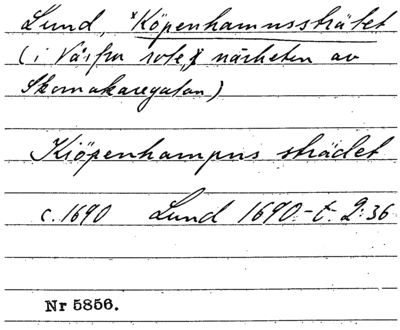 Lund, *Köpenhamnssträtet
(i Vårfru rote, i närheten av
Skomakaregatan)
Kiöpenhampns strädet
c. 1690 Lund 1690-t. 2:36
Nr 5856.